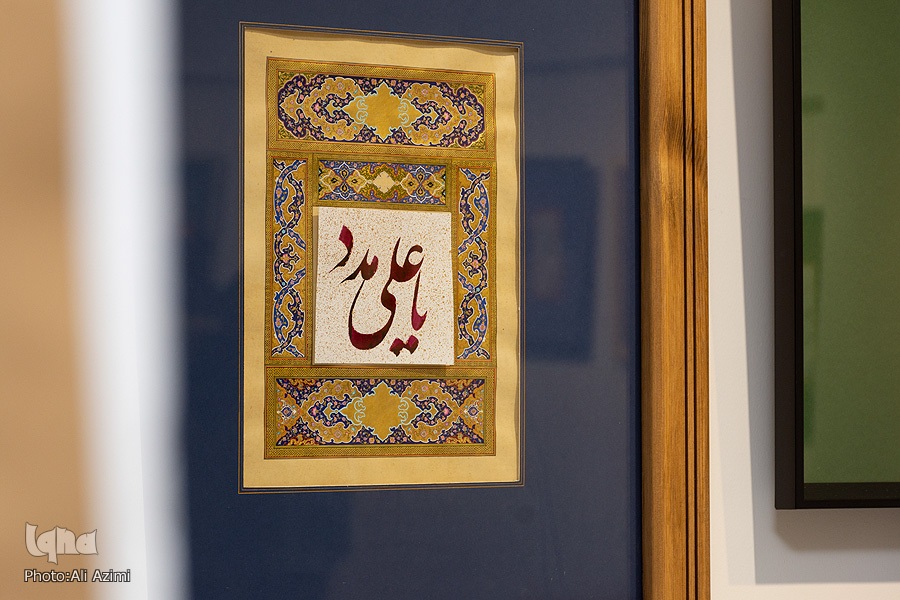 یا علی مدد
Iqna
Photo:Ali Azimi